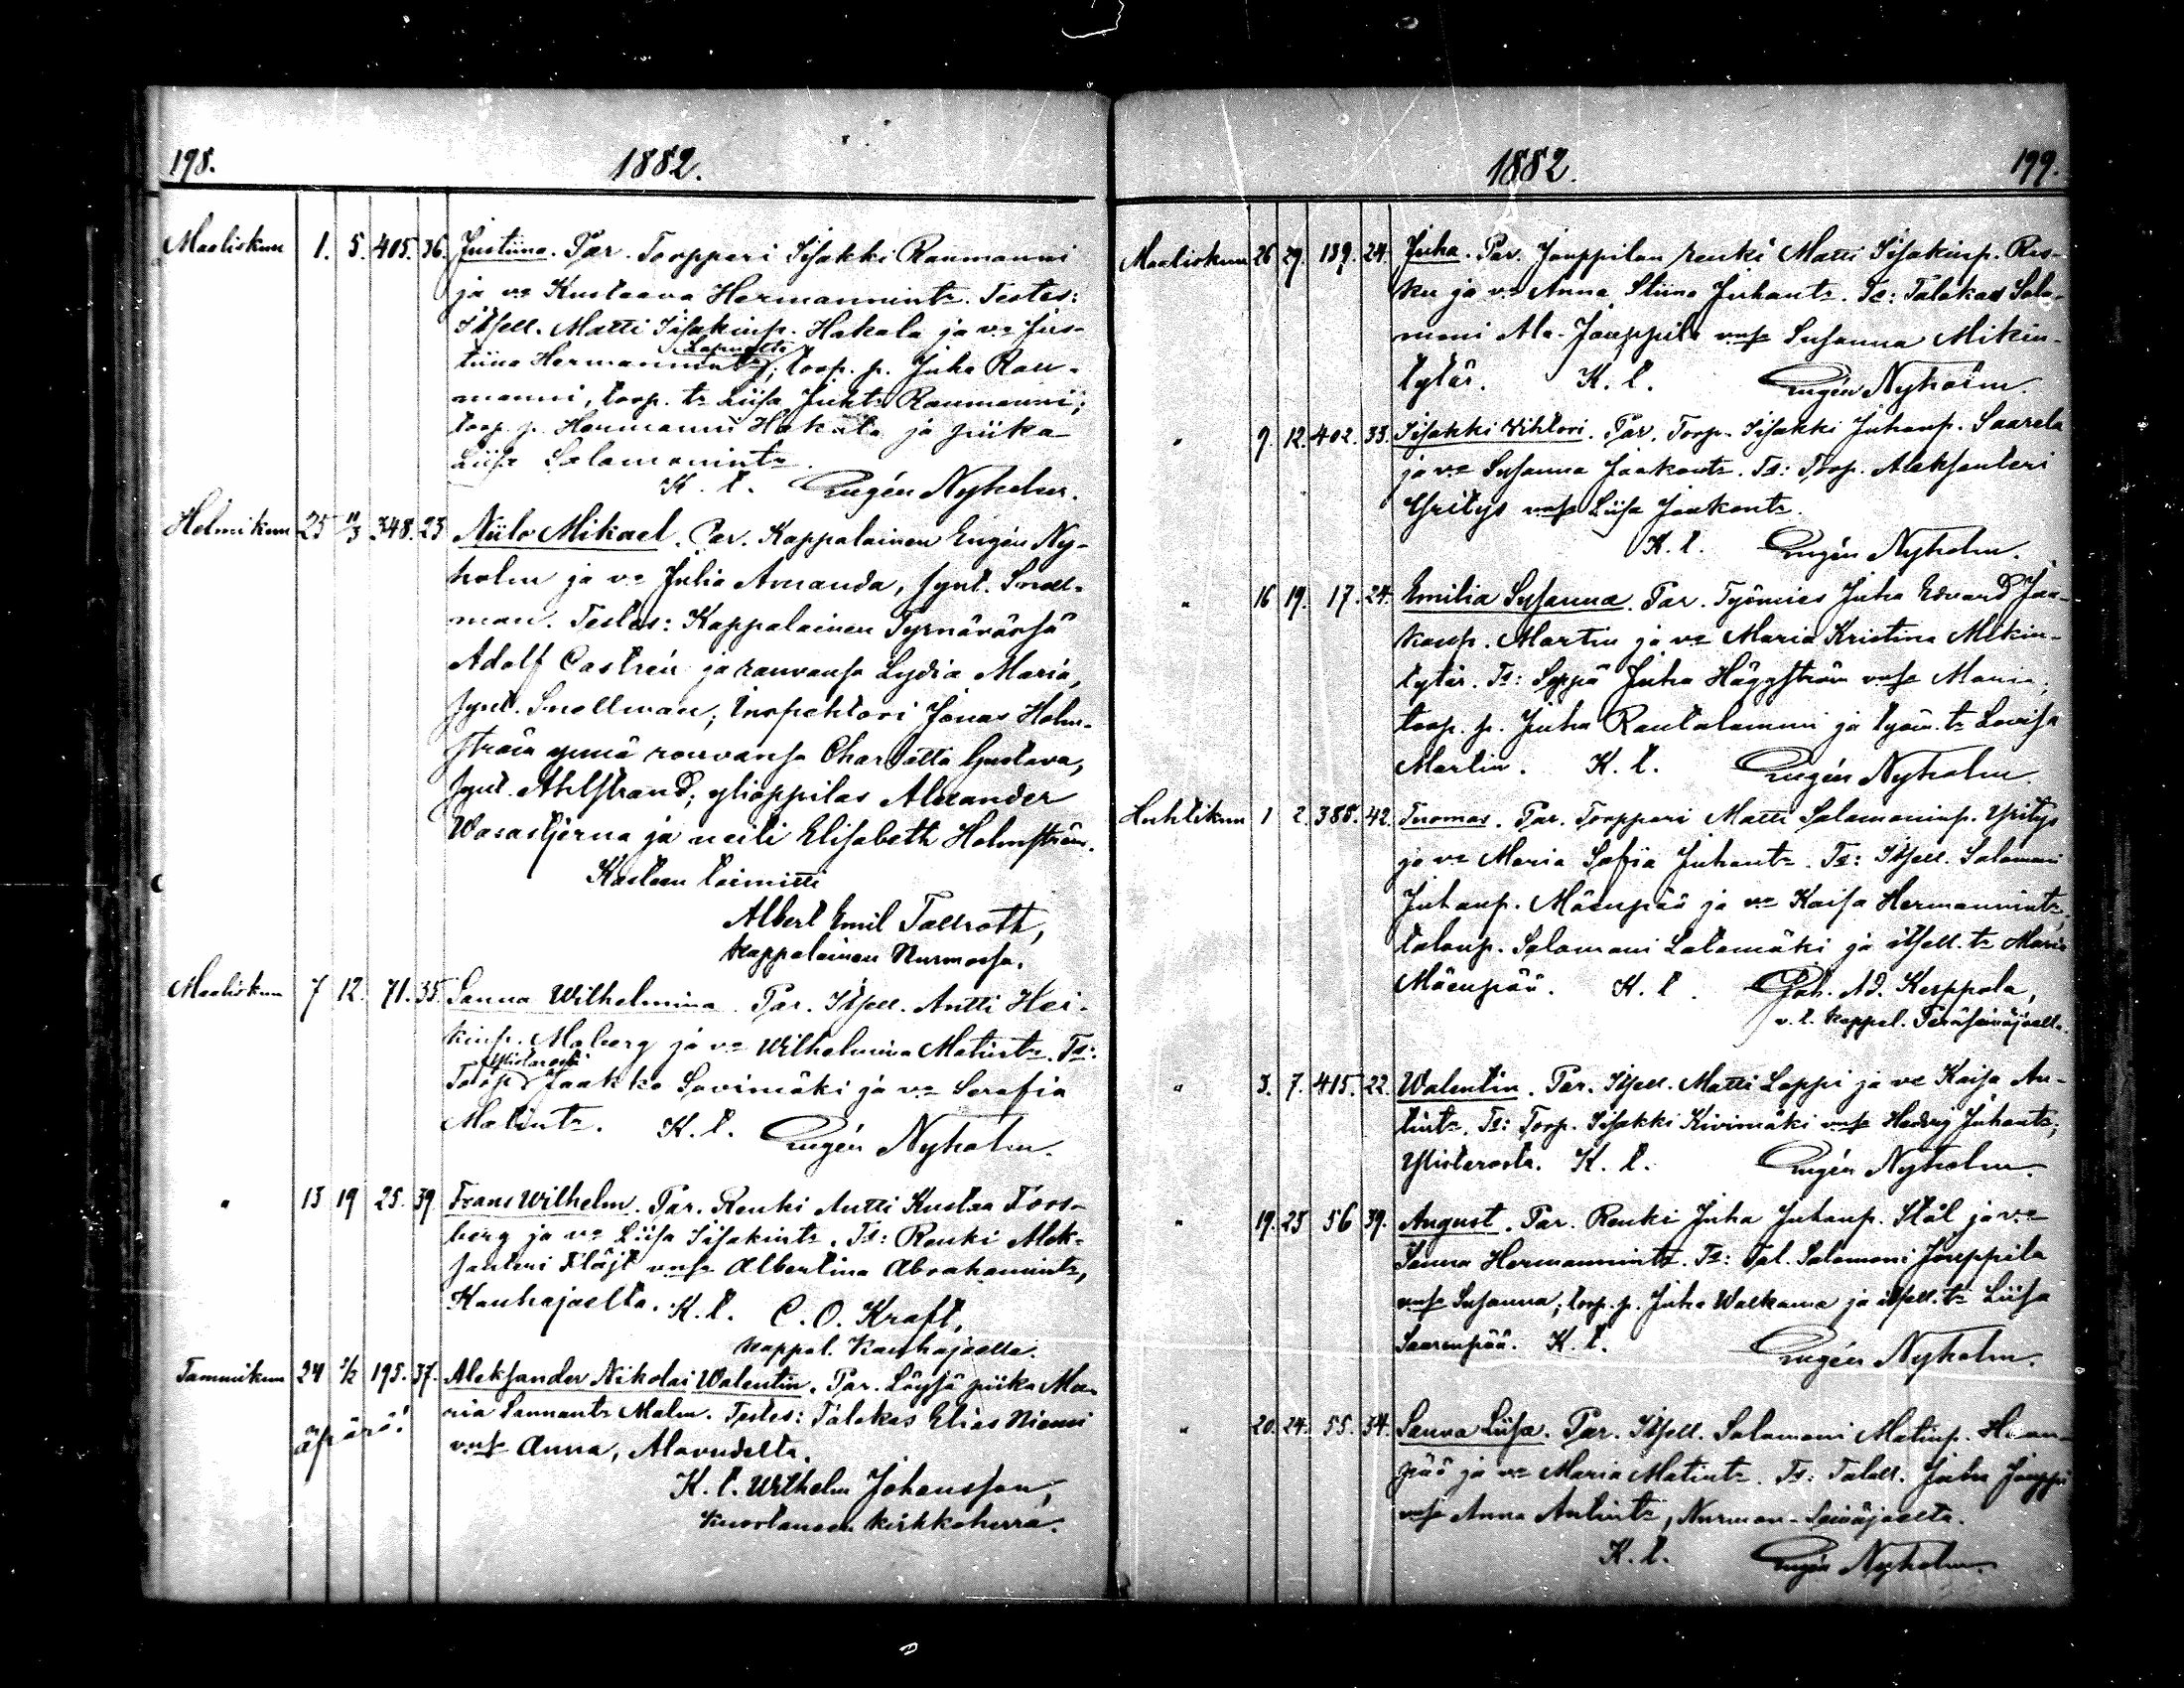 198. 1882.
Maaliskuu 1. 5. 405. 36. Justiina. Par. Toopperi Iisakki Raumanni
ja vo Kustaava Hermannintr. Testes:
Itsell. Matti Iisakinp. Hakala ja vo Jus-
Lapualta
tiina Hermannintr; toop. p. Juha Rau-
manni, toop. tr Liisa Juhtr Raumanni;
toop. p. Hermanni Hakala ja piika
Liisa Salamonintr.
K. t. Eugén Nyholm.
Helmikuu 25 11/3 348. 23 Niilo Mikael. Par. Kappalainen Eugén Ny-
holm ja vo Julia Amanda, synt. Snell-
man. Testes: Kappalainen Tyrnävässä
Adolf Castrén ja rouvansa Lydia Maria,
synt. Snellman; Inspehtori Jonas Holm-
ström ynnä rouvansa Charlotta Gustava,
synt. Ahlstrand; ylioppilas Alexander
Wasastjerna ja neiti Elisabeth Holmström.
Kasteen toimitti
Albert Emil Tallroth,
Kappalainen Nurmossa.
Maaliskuu 7 12. 71. 35. Sanna Wilhelmina. Par. Itsell. Antti Hei-
kinp. Moberg ja vo Wilhelmina Matintr. Ts:
Ylistarosta
Toop. Jaakko Savimäki ja vo Serafia
Matintr. K. t. Eugén Nyholm.
" 13 19 25. 39. Frans Wilhelm. Par. Renki Antti Kustaa Fors-
berg ja vo Liisa Iisakintr. Ts: Renki Alek-
santeri Flöjt vnsa Albertina Abrahamintr,
Kauhajoelta. K. t. C. O. Kraft,
kappal. Kauhajoella.
Tammikuu 24 1/2 195. 37. Aleksander Nikolai Walentin. Par. Löysä piika Ma-
ria Sannantr Malm. Testes: Talokas Elias Niemi
äpärä!
vnsa Anna, Alavudelta.
K. t. Wilhelm Johansson,
Kuortaneen kirkkoherra.
1882. 199.
Maaliskuu 26 29. 139. 24. Juha. Par. Jouppilan renki Matti Iisakinp. Rus-
ku ja vo Anna Stiina Juhantr. Ts: Talokas Salo-
moni Ala-Jouppila vnsa Susanna Mikin-
tytär. K. t. Eugén Nyholm.
" 9. 12. 402. 33. Iisakki Wihtori. Par. Toop. Iisakki Juhanp. Saarela
ja vo Susanna Jaakontr. Ts: Toop. Aleksanteri
Yritys vnsa Liisa Jaakontr.
K. t. Eugén Nyholm.
" 16 19. 17. 24. Emilia Susanna. Par. Työmies Juha Edvard Jaa-
konp. Martin ja vo Maria Kristina Mikin-
tytär. Ts: Seppä Juha Häggström vnsa Maria;
toop. p. Juha Rautalammi ja työm. tr Lovisa
Martin. K. t. Eugén Nyholm.
Huhtikuu 1 2. 388. 42. Tuomas. Par. Toopperi Matti Salamoninp. Yritys
ja vo Maria Sofia Juhantr. Ts: Itsell. Salamoni
Juhanp. Mäenpää ja vo Kaisa Hermannintr,
talonp. Salamoni Latomäki ja itsell. tr Maria
Mäenpää. K. t. Joh. Ad. Keppola,
v. t. kappal. Peräseinäjoella.
" 3. 7. 415. 22. Walentin. Par. Itsell. Matti Leppi ja vo Kaisa An-
tintr. Ts: Toop. Iisakki Kivimäki vnsa Hedvig Juhantr;
Ylistarosta. K. t. Eugén Nyholm.
" 19. 23 56 39. August. Par. Renki Juha Juhanp. Stål ja vo
Sanna Hermannintr. Ts: Tal. Salomoni Jouppila
vnsa Susanna; toop. p. Juha Walkama ja itsell. tr Liisa
Saarenpää. K. t. Eugén Nyholm.
" 20. 24. 55. 34. Sanna Liisa. Par. Itsell. Salamoni Matinp. Haan-
pää ja vo Maria Matintr. Ts: Talall. Juha Jouppi
vnsa Anna Antintr, Nurmon-Seinäjoelta.
K. t. Eugén Nyholm.